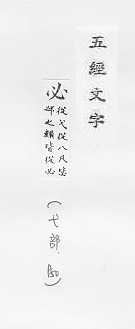 五經文字
必
從弋從八凡
邲之類皆從必
(弋部.